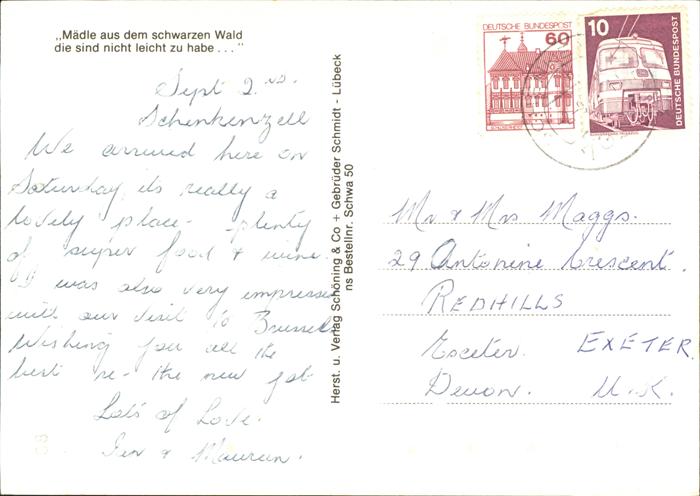 „Mädle aus dem schwarzen Wald
die sind nicht leicht zu habe . . . "
Sept 2nd.
Schenkenzell
We arrived here on
Saturday, its really a
lovely place - plenty
of super food & wine.
I was also very impressed
with our visit to Brussels
Wishing you all the
best re- the new job
Lots of Love.
& Maureen.
Herst. u. Verlag Schöning & Co + Gebrüder Schmidt - Lübeck
ns Bestellnr. Schwa 50
DEUTSCHE BUNDESPOST
60
10
DEUTSCHE BUNDESPOST
Mr & Mrs Maggs.
29 Antonine Crescent.
REDHILLS
Exeter. EXETER.
Devon. U.K.